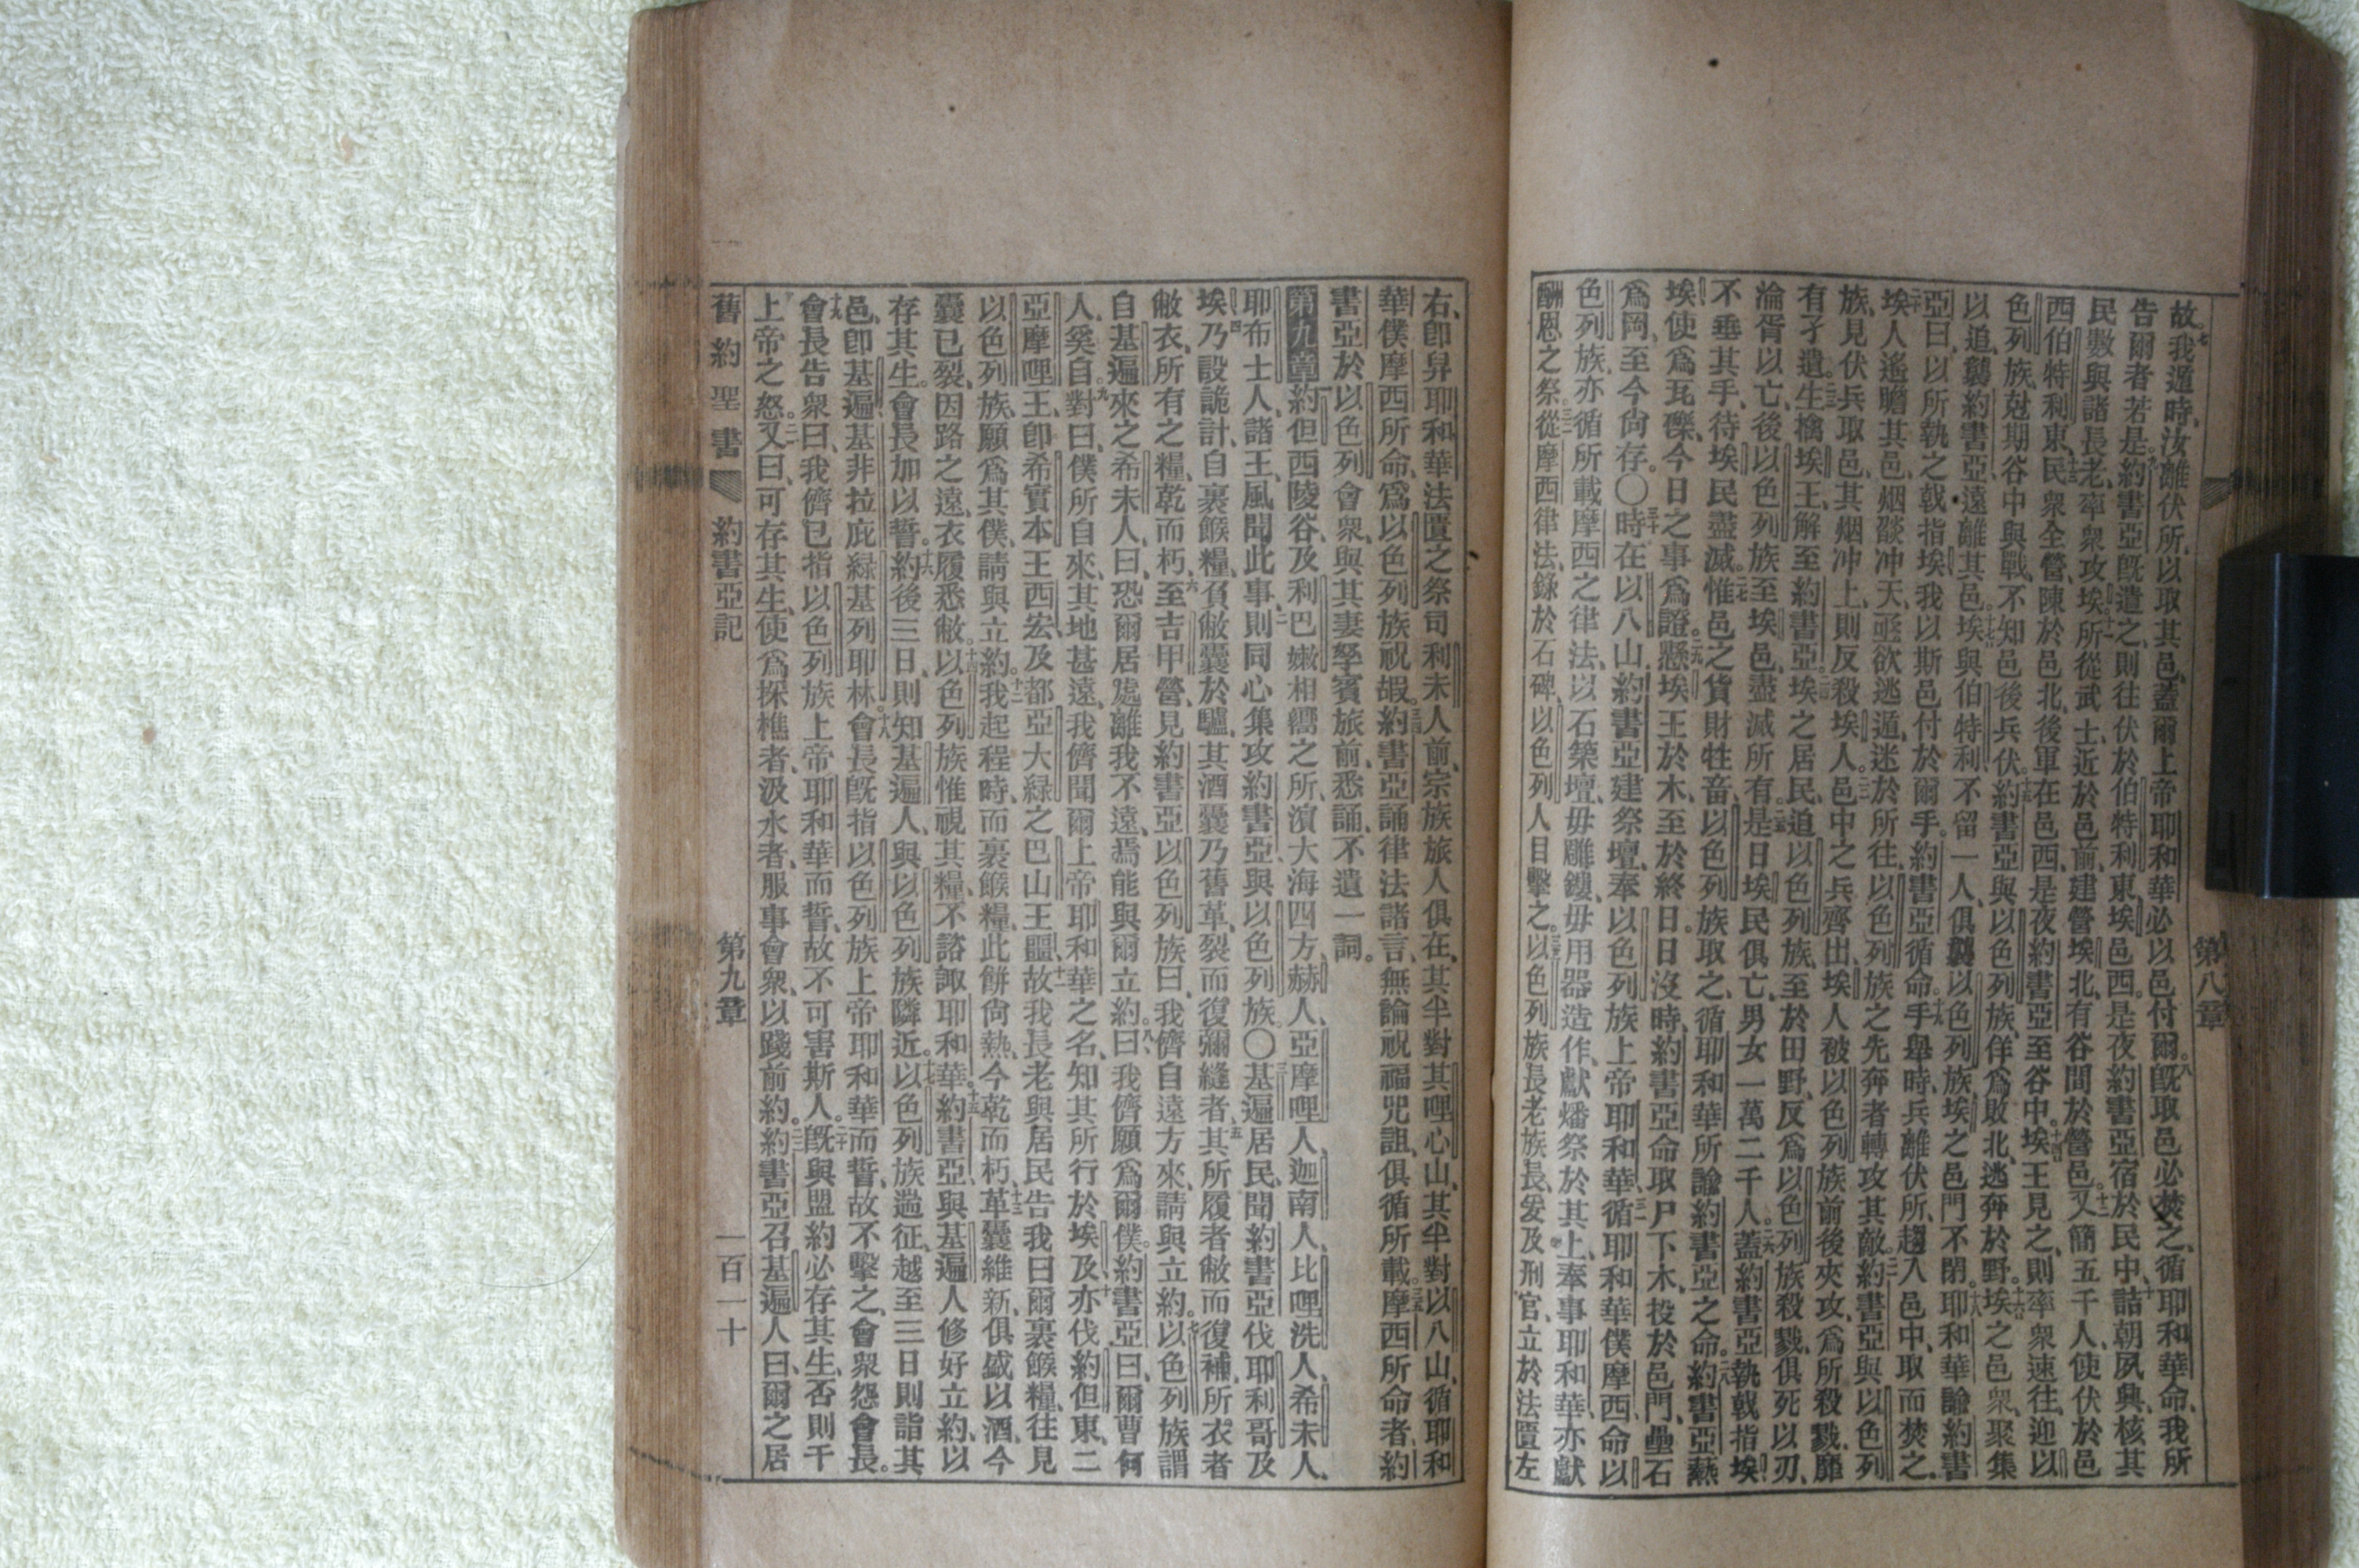 第八章
故、七我遁時、汝離伏所、以取其邑、蓋爾上帝耶和華必以邑付爾、八旣取邑必焚之、循耶和華命、我所
告爾者若是、九約書亞旣遣之、則往伏於伯特利東、埃邑西、是夜約書亞宿於民中、十詰朝夙興、核其
民數、與諸長老、率衆攻埃、十一所從武士、近於邑前、建營埃北、有谷間於營邑、十二又簡五千人、使伏於邑
西、伯特利東、十三民衆全營、陳於邑北、後軍在邑西、是夜約書亞至谷中、十四埃王見之、則率衆速往、迎以
色列族、尅期谷中與戰、不知邑後兵伏、十五約書亞與以色列族、佯爲敗北、逃奔於野、十六埃之邑衆聚集
以追、襲約書亞、遠離其邑、十七埃與伯特利不留一人、俱襲以色列族、埃之邑門不閉、十八耶和華諭約書
亞曰、以所執之戟指埃、我以斯邑付於爾手、約書亞循命、十九手舉時、兵離伏所、趨入邑中、取而焚之、
二十埃人遙瞻其邑、烟燄冲天、亟欲逃遁、迷於所往、以色列族之先奔者、轉攻其敵、二一約書亞與以色列
族、見伏兵取邑、其烟冲上、則反殺埃人、二二邑中之兵齊出、埃人被以色列族前後夾攻、爲所殺戮、靡
有孑遺、二三生擒埃王、解至約書亞、二四埃之居民、追以色列族、至於田野、反爲以色列族殺戮、俱死以刃、
淪胥以亡、後以色列族至埃邑、盡滅所有、二五是日埃民俱亡、男女一萬二千人、二六蓋約書亞執戟指埃
不垂其手、待埃民盡滅、二七惟邑之貨財牲畜、以色列族取之、循耶和華所諭約書亞之命、二八約書亞燕
埃、使爲瓦礫、今日之事爲證、二九懸埃王於木、至於終日、日沒時、約書亞命取尸下木、投於邑門、壘石
爲岡、至今尙存、〇三十時在以八山、約書亞建祭壇、奉以色列族上帝耶和華、三一循耶和華僕摩西命以
色列族、亦循所載摩西之律法、以石築壇、毋雕鏤、毋用器造作、獻燔祭於其上、奉事耶和華、亦獻
酬恩之祭、三二從摩西律法、錄於石碑、以色列人目擊之、三三以色列族長老、族長、爰及刑官、立於法匱左
右、卽舁耶和華法匱之祭司利未人前、宗族旅人俱在、其半對其哩心山、其半對以八山、循耶和
華僕摩西所命、爲以色列族祝嘏、三四約書亞誦律法諸言、無論祝福咒詛、俱循所載、三五摩西所命者、約
書亞於以色列會衆、與其妻孥賓旅前、悉誦、不遺一詞。
第九章 約但西陵谷、及利巴嫩相嚮之所、濱大海四方、赫人、亞摩哩人、迦南人、比哩洗人、希未人、
耶布士人、諸王、風聞此事、二則同心集攻約書亞與以色列族、〇三基遍居民、聞約書亞伐耶利哥及
埃、四乃設詭計、自裹餱糧、負敝囊於驢、其酒囊乃舊革、裂而復彌縫者、五其所履者敝而復補、所衣者
敝衣、所有之糧、乾而朽、六至吉甲營、見約書亞、以色列族曰、我儕自遠方來、請與立約、七以色列族謂
自基遍來之希未人曰、恐爾居處離我不遠、焉能與爾立約、八曰、我儕願爲爾僕、約書亞曰、爾曹何
人、奚自、九對曰、僕所自來、其地甚遠、我儕聞爾上帝耶和華之名、知其所行於埃及、十亦伐約但東、二
亞摩哩王、卽希實本王西宏、及都亞大綠之巴山王噩、十一故我長老與居民告我曰、爾裹餱糧、往見
以色列族、願爲其僕、請與立約、十二我起程時、而裹餱糧、此餅尙熱、今乾而朽、十三革囊維新、俱盛以酒、今
囊已裂、因路之遠、衣履悉敝、十四以色列族惟視其糧、不諮諏耶和華、十五約書亞與基遍人修好立約、以
存其生、會長加以誓、十六約後三日、則知基遍人、與以色列族隣近、十七以色列族遄征、越至三日則詣其
邑、卽基遍、基非拉、庇綠、基列耶林、十八會長旣指以色列族上帝耶和華而誓、故不擊之、會衆怨會長。
十九會長告衆曰、我儕已指以色列族上帝耶和華而誓、故不可害斯人、二十旣與盟約、必存其生、否則干
上帝之怒、二一又曰、可存其生、使爲採樵者、汲水者、服事會衆、以踐前約、二二約書亞召基遍人曰、爾之居
舊約聖書 約書亞記 第九章 一百一十